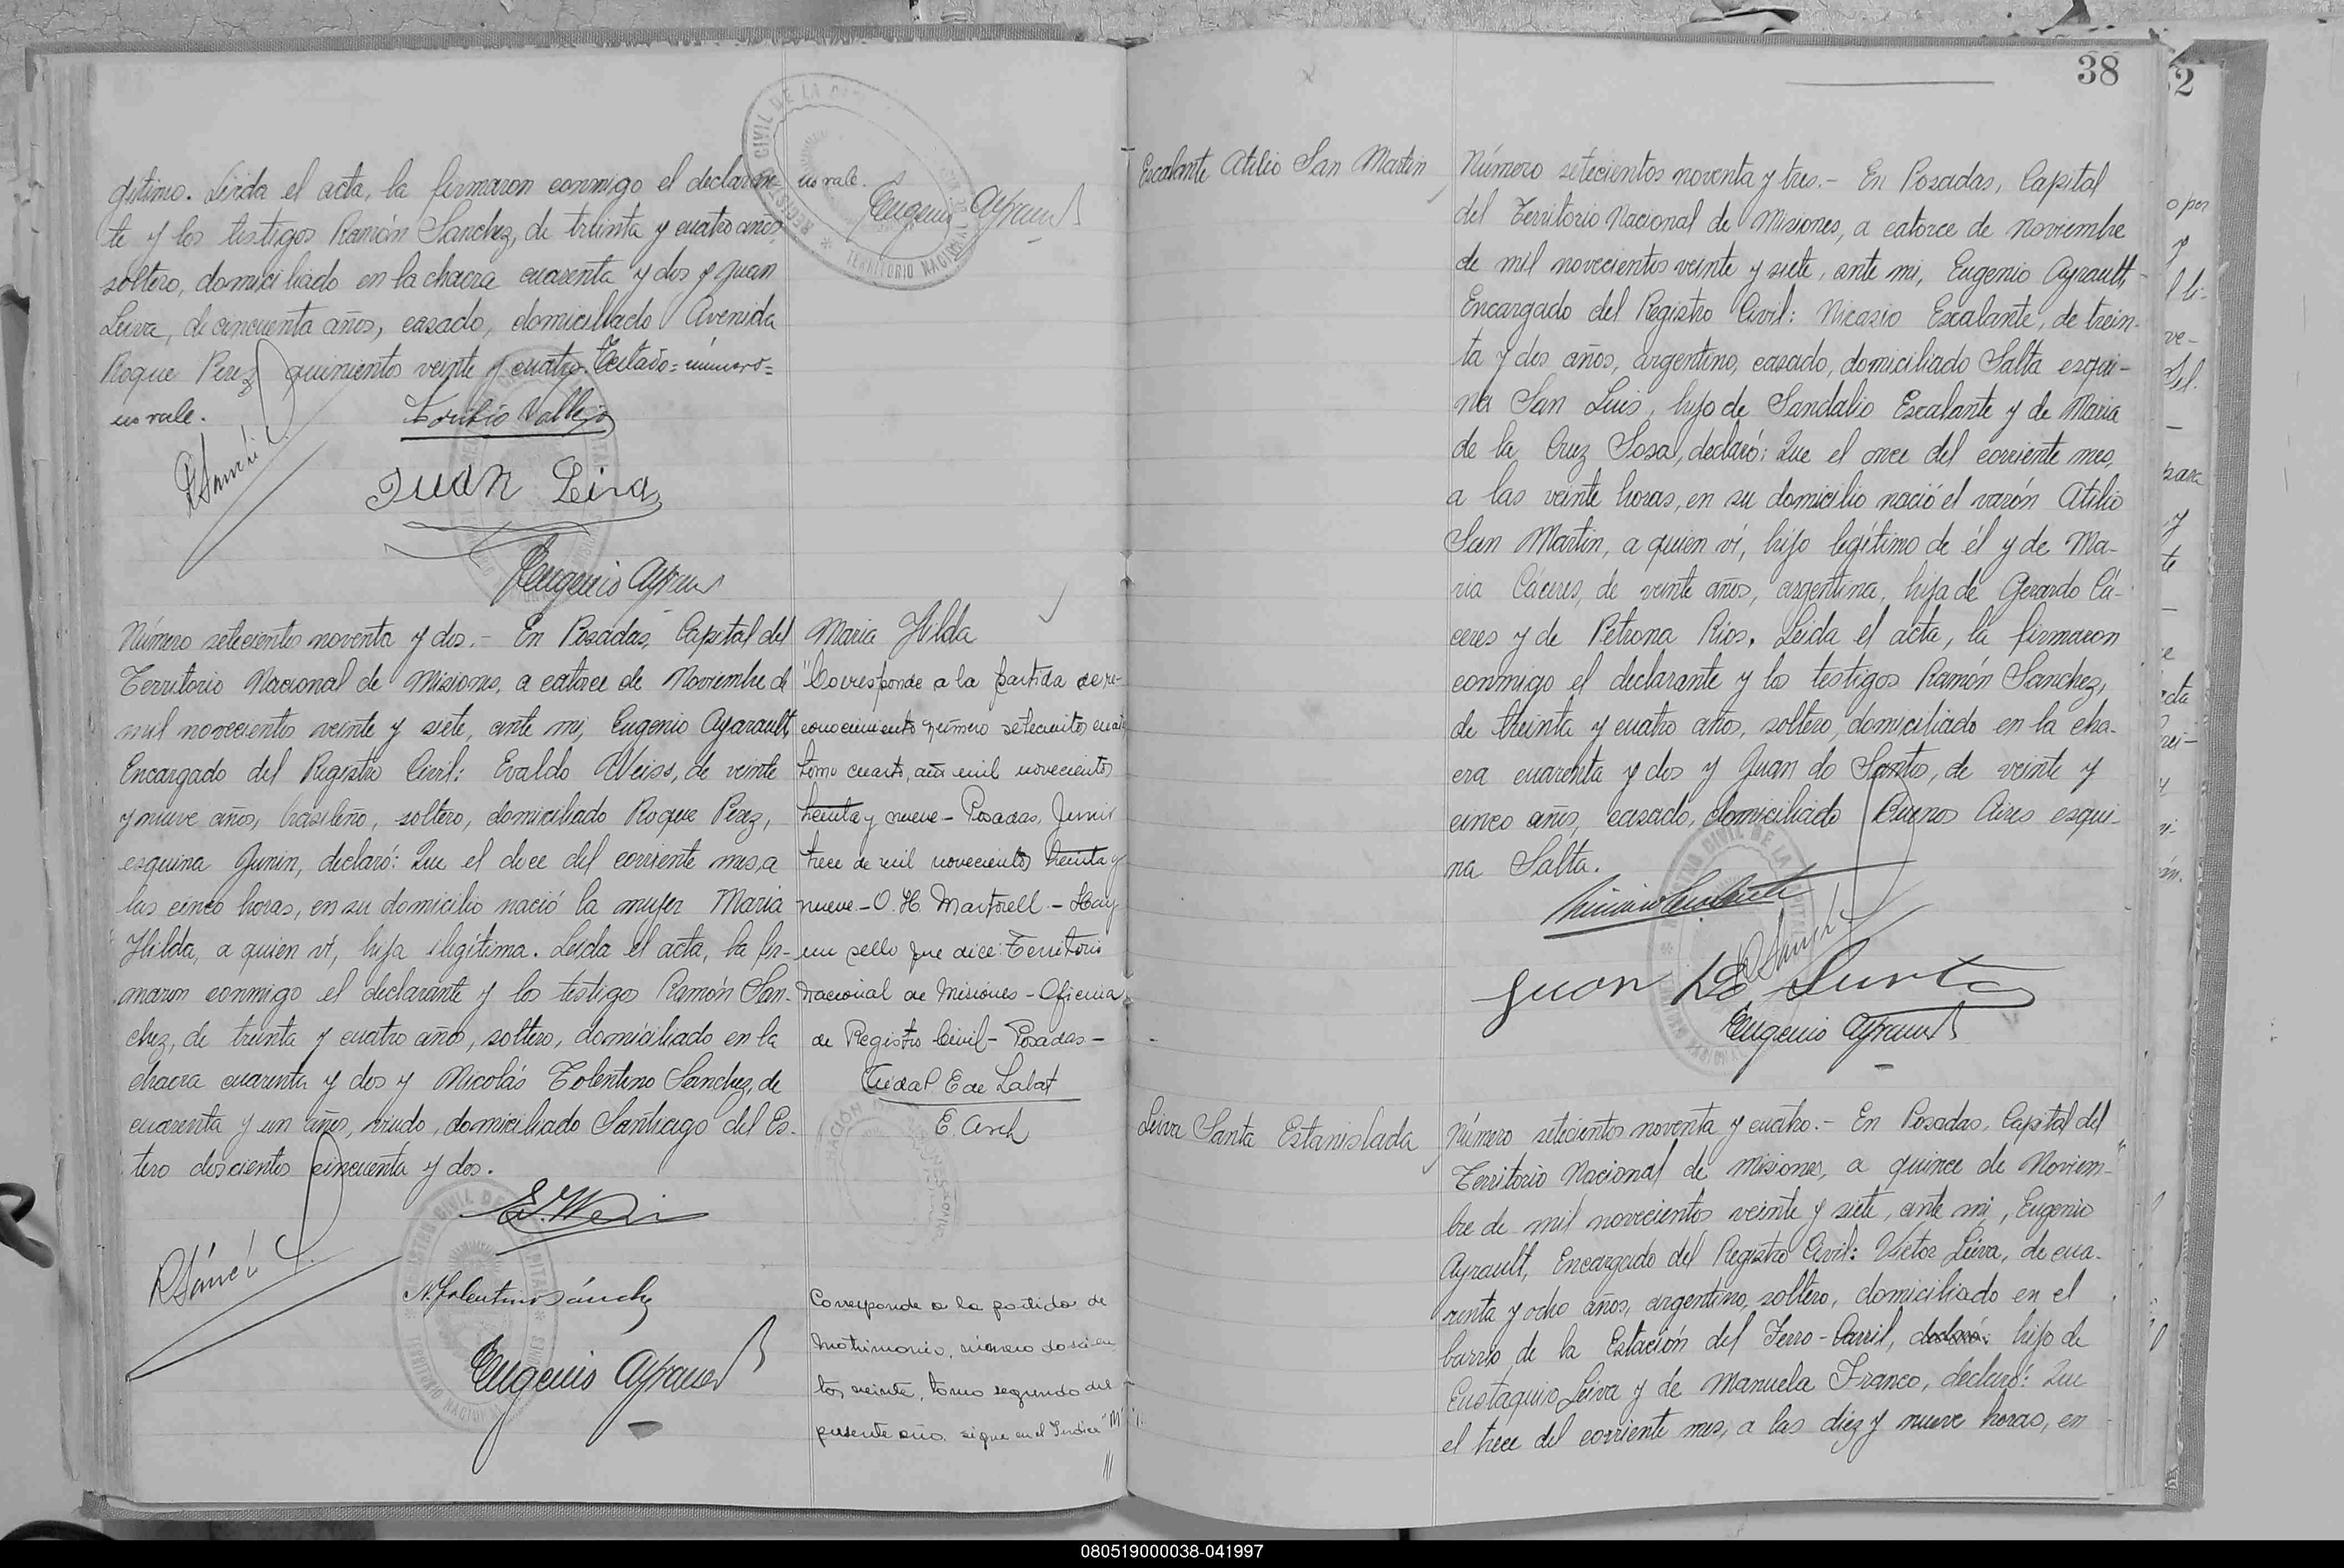 gítimo. Leída el acta, la firmaron conmigo el declaran-
te y los testigos Ramón Sanchez, de treinta y cuatro años,
soltero, domiciliado en la chacra cuarenta y dos y Juan
Leiva, de cincuenta años, casado, domiciliado Avenida
Roque Perez quinientos veinte y cuatro. Testado=número=
no vale.
Toribio Vallejo
RSanch
Juan Leiva
Eugenio Ayrault
no vale.
Eugenio Ayrault
REGISTRO CIVIL DE LA CAPITAL
TERRITORIO NACIONAL
Número setecientos noventa y dos.- En Posadas, Capital del
Territorio Nacional de Misiones, a catorce de Noviembre de
mil novecientos veinte y siete, ante mi, Eugenio Ayarault,
Encargado del Registro Civil: Evaldo Weiss, de veinte
y nueve años, brasileño, soltero, domiciliado Roque Perez,
esquina Junin, declaró: Que el doce del corriente mes, a
las cinco horas, en su domicilio nació la mujer Maria
Hilda, a quien ví, hija ilegítima. Leida el acta, la fir-
maron conmigo el declarante y los testigos Ramón San-
chez, de treinta y cuatro años, soltero, domiciliado en la
chacra cuarenta y dos y Nicolás Tolentino Sanchez, de
cuarenta y un años, viudo, domiciliado Santiago del Es-
tero doscientos cincuenta y dos.
E. Weiss
RSánch
N. Tolentino Sánchez
Eugenio Ayrault
Maria Hilda
"Corresponde a la partida de re-
conocimiento número setecientos
tomo cuarto, año mil novecientos
treinta y nueve - Posadas, Junio
trece de mil novecientos treinta y
nueve - O. H. Martorell - Hay
un sello que dice: Territorio
Nacional de Misiones - Oficina
de Registro Civil - Posadas -
E de Labat
E. Asch
Corresponde a la partida de
matrimonio, número doscien
tos veinte, tomo segundo del
presente año, sigue en el Indice "M"
38
2
Escalante Atilio San Martin
Número setecientos noventa y tres.- En Posadas, Capital
del Territorio Nacional de Misiones, a catorce de Noviembre
de mil novecientos veinte y siete, ante mi, Eugenio Ayrault,
Encargado del Registro Civil: Nicasio Escalante, de trein-
ta y dos años, argentino, casado, domiciliado Salta esqui-
na San Luis, hijo de Sandalio Escalante y de Maria
de la Cruz Sosa, declaró: Que el once del corriente mes,
a las veinte horas, en su domicilio nació el varón Atilio
San Martin, a quien ví, hijo legítimo de él y de Ma-
ria Cáceres, de veinte años, argentina, hija de Gerardo Cá-
ceres y de Petrona Rios. Leida el acta, la firmaron
conmigo el declarante y los testigos Ramón Sanchez,
de treinta y cuatro años, soltero, domiciliado en la cha-
cra cuarenta y dos y Juan do Santos, de veinte y
cinco años, casado, domiciliado Buenos Aires esqui-
na Salta.
Nicasio Escalante
RSanch
Juan Do Santo
Eugenio Ayrault
Leiva Santa Estanislada
Número setecientos noventa y cuatro.- En Posadas, Capital del
Territorio Nacional de Misiones, a quince de Noviem-
bre de mil novecientos veinte y siete, ante mi, Eugenio
Ayrault, Encargado del Registro Civil: Víctor Leiva, de cua-
renta y ocho años, argentino, soltero, domiciliado en el
barrio de la Estación del Ferro-Carril, declaró: hijo de
Eustaquio Leiva y de Manuela Franco, declaró: Que
el trece del corriente mes, a las diez y nueve horas, en
080519000038-041997